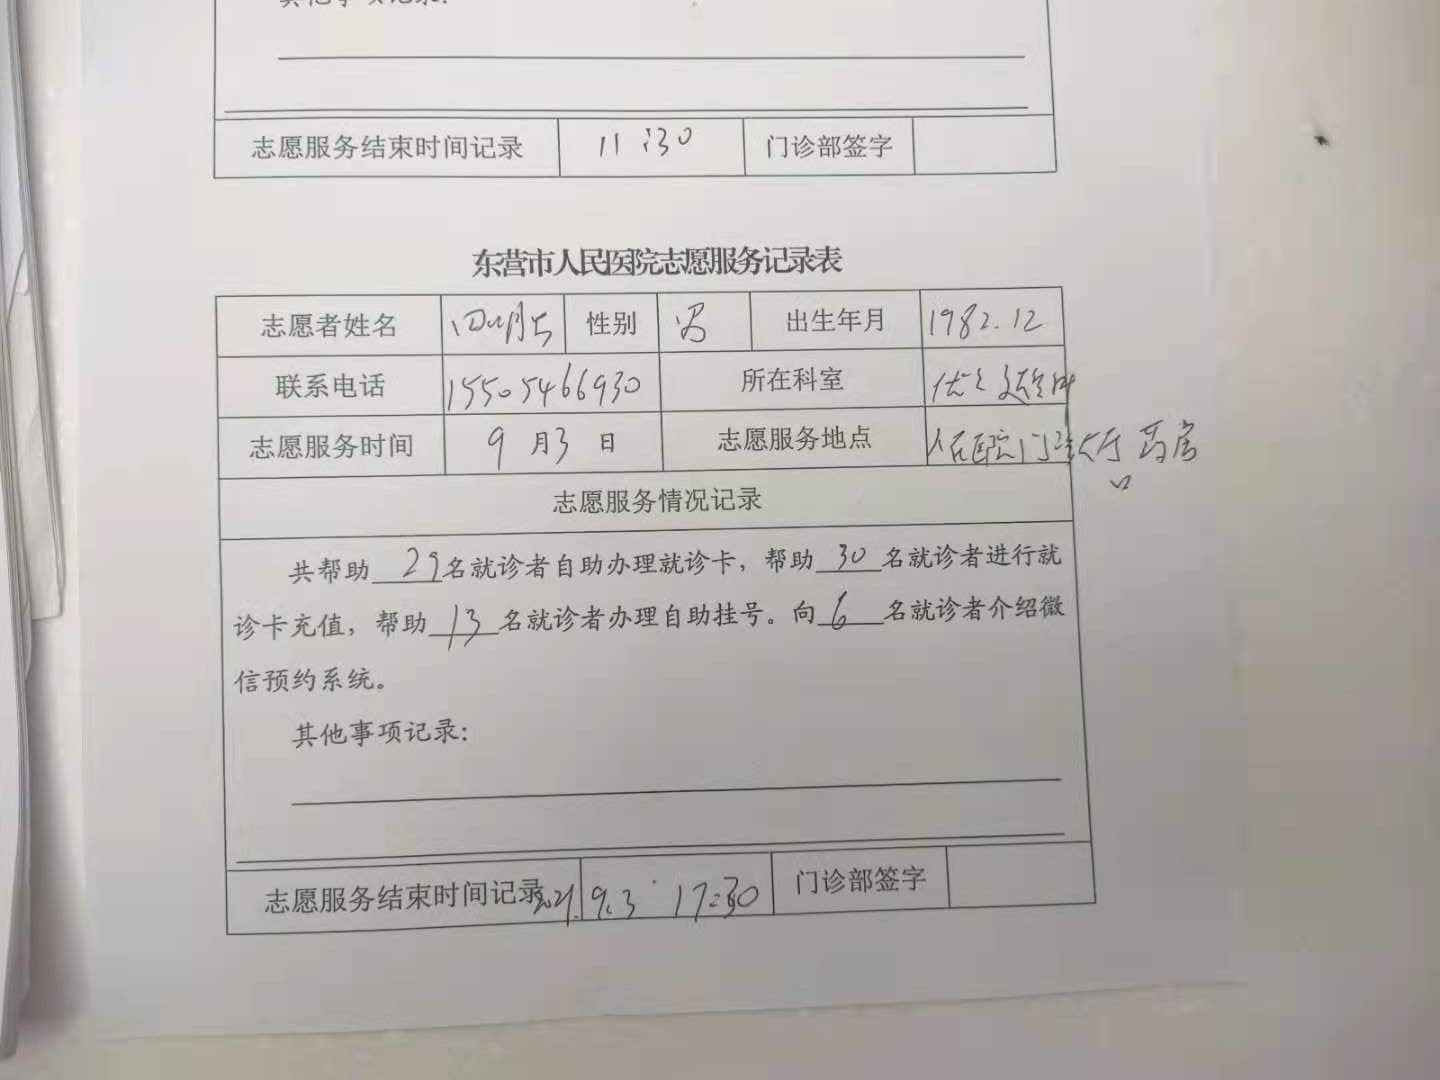 其他事项记录:
志愿服务结束时间记录 11:30 门诊部签字
东营市人民医院志愿服务记录表
志愿者姓名 性别 男 出生年月 1982.12
联系电话 15505466930 所在科室
志愿服务时间 9月3日 志愿服务地点 人民医院门诊大厅 药房
口
志愿服务情况记录
共帮助29名就诊者自助办理就诊卡，帮助30名就诊者进行就
诊卡充值，帮助13名就诊者办理自助挂号。向6名就诊者介绍微
信预约系统。
其他事项记录:
志愿服务结束时间记录 2021.9.3 17:30 门诊部签字